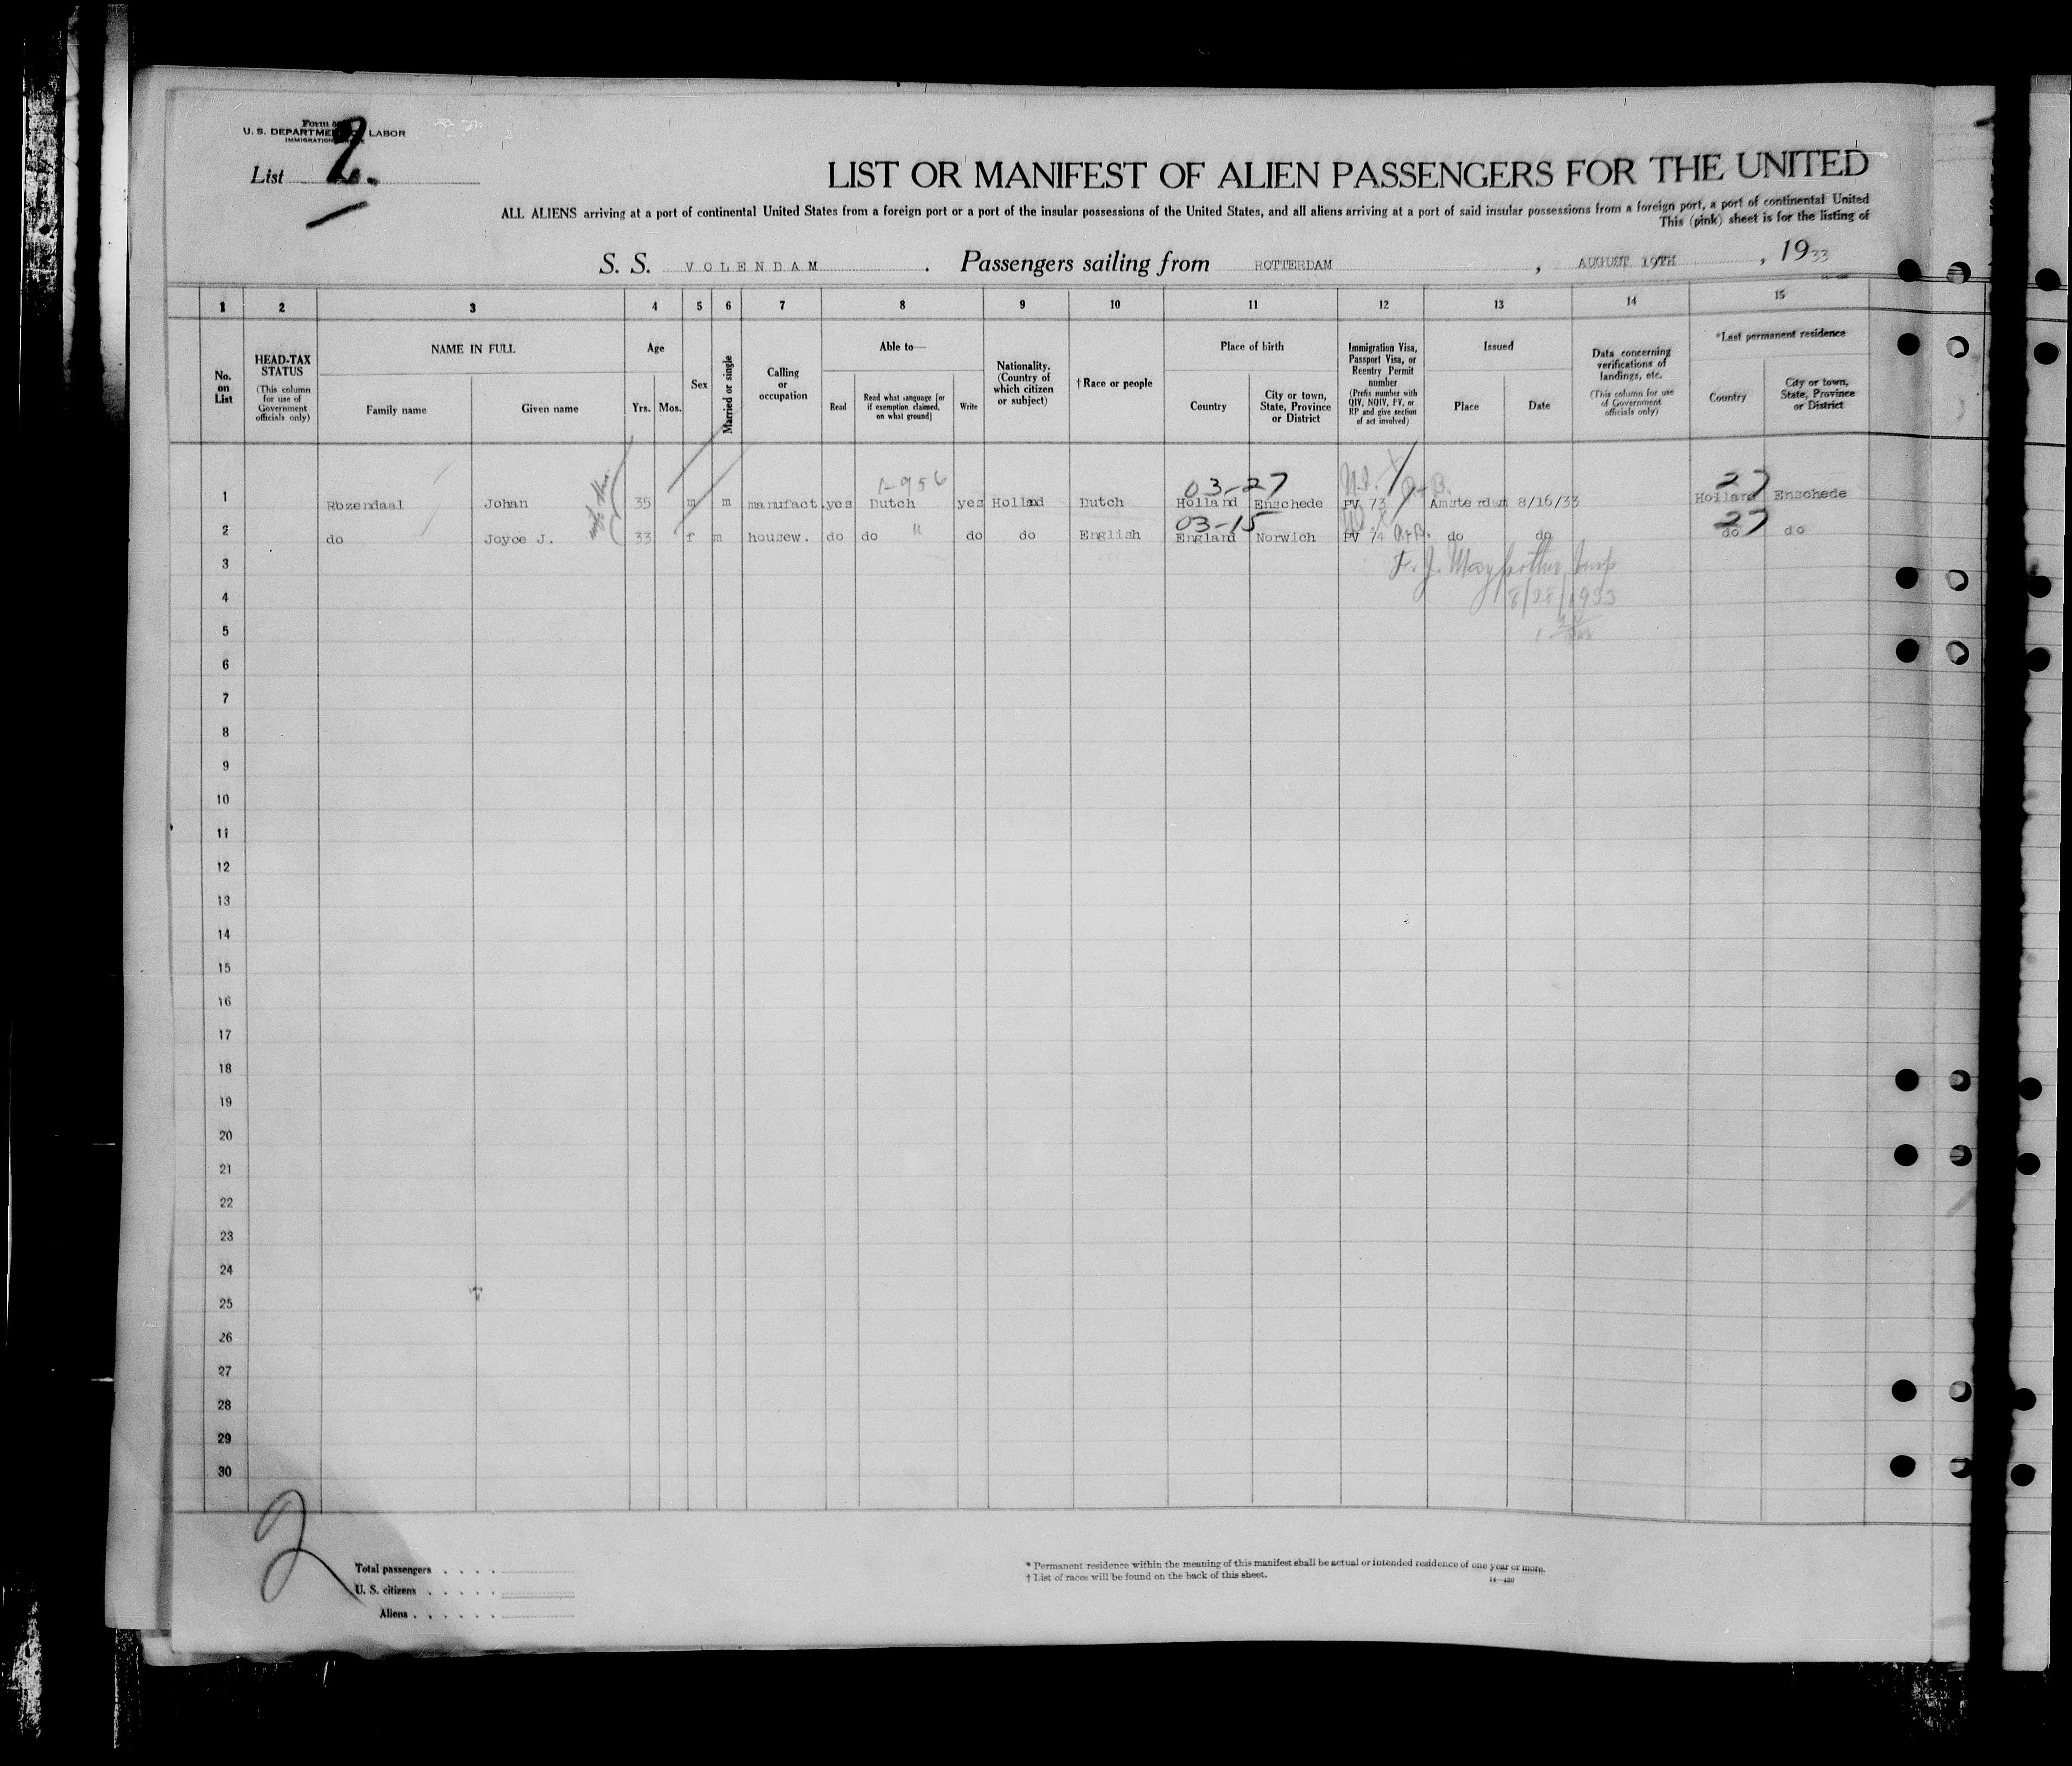 Form
U. S. DEPARTMENT LABOR
IMMIGRATION
List 2.
LIST OR MANIFEST OF ALIEN PASSENGERS FOR THE UNITED
ALL ALIENS arriving at a port of continental United States from a foreign port or a port of the insular possessions of the United States, and all aliens arriving at a port of said insular possessions from a foreign port, a port of continental United
This (pink) sheet is for the listing of
S. S. VOLENDAM . Passengers sailing from ROTTERDAM , AUGUST 19TH , 1933
1 2 3 4 5 6 7 8 9 10 11 12 13 14 15
No. on List
HEAD-TAX STATUS
(This column for use of Government officials only)
NAME IN FULL
Family name Given name
Age
Yrs. Mos.
Sex
Married or single
Calling or occupation
Able to—
Read
Read what language [or if exemption claimed, on what ground]
Write
Nationality. (Country of which citizen or subject)
† Race or people
Place of birth
Country
City or town, State, Province or District
Immigration Visa, Passport Visa, or Reentry Permit number
(Prefix number with QIV, NQIV, PV, or RP and give section of act involved)
Issued
Place Date
Data concerning verifications of landings, etc.
(This column for use of Government officials only)
*Last permanent residence
Country
City or town, State, Province or District
1-956 03-27 27
1 Rozendaal Johan 35 m m manufact. yes Dutch yes Holland Dutch Holland Enschede PV 73 Amsterdam 8/16/33 Holland Enschede
03-15 27
2 do Joyce J. 33 f m housew. do do " do do English England Norwich PV 74 do do do do
3
8/28/1933
4
5
6
7
8
9
10
11
12
13
14
15
16
17
18
19
20
21
22
23
24
25
26
27
28
29
30
2
Total passengers . . . .
U. S. citizens . . . . .
Aliens . . . . . .
* Permanent residence within the meaning of this manifest shall be actual or intended residence of one year or more.
† List of races will be found on the back of this sheet.